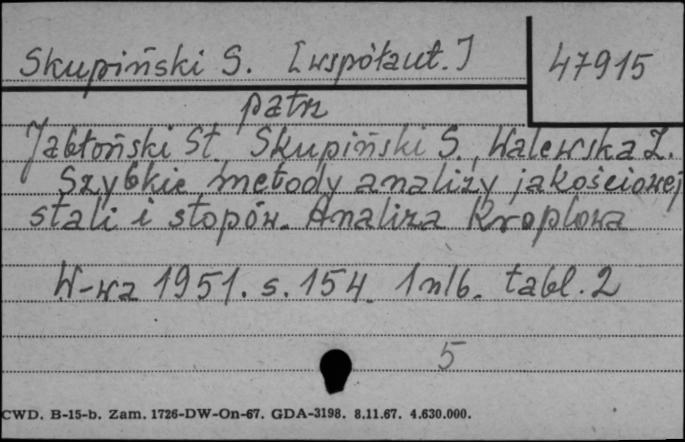 Skupiński S. [współaut.]
47915
patrz
Jabłoński St. Skupiński S., Walewska Z.
Szybkie metody analizy jakościowej
stali i stopów. Analiza Kroplowa
W-wa 1951. s. 154. 1 nlb. tabl. 2
5
CWD. B-15-b. Zam. 1726-DW-On-67. GDA-3198. 8.11.67. 4.630.000.